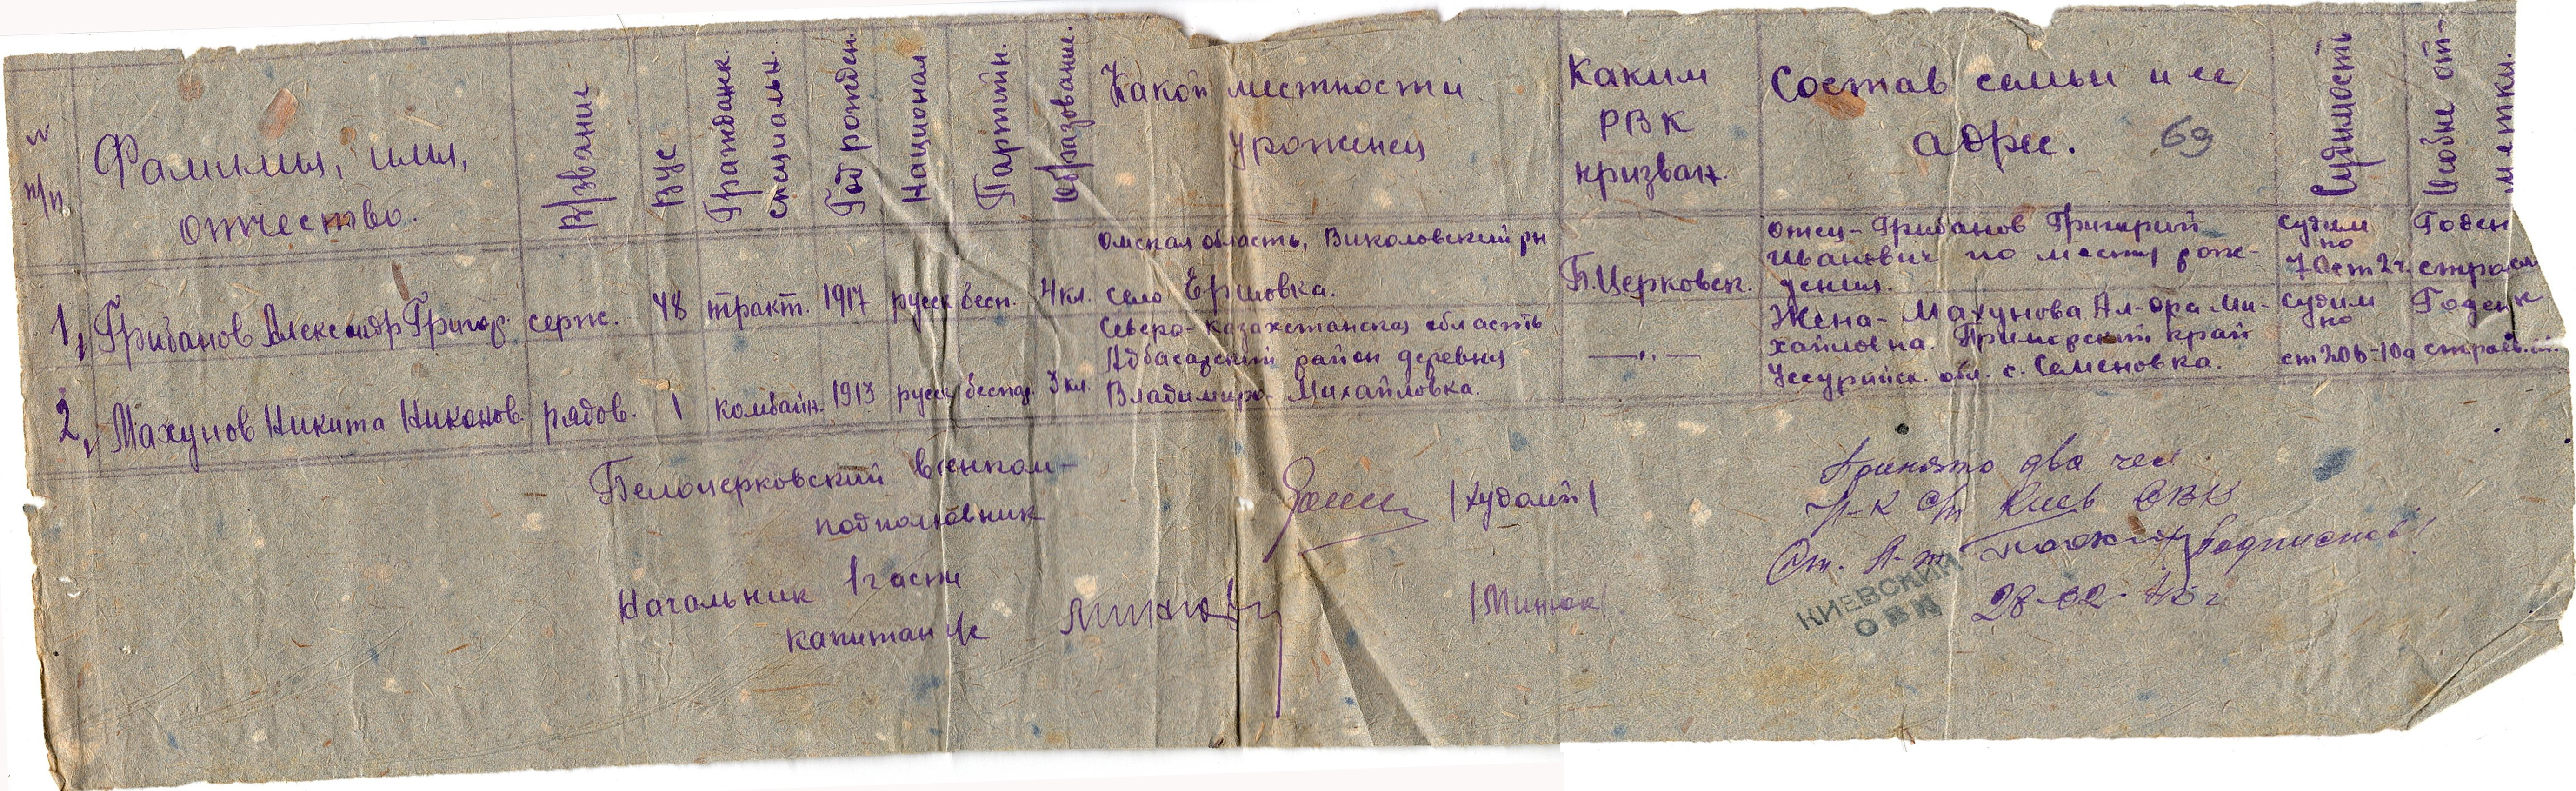 № п/п
Фамилия, имя,
отчество.
В/звание
ВУС
Гражданк.
специальн.
Год рожден.
Национал
Партийн.
Образование.
Какой местности
уроженец
Каким
РВК
призван.
Состав семьи и ее
адрес.
69
Судимость
Особые от-
метки.
1, Грибанов Александр Григор. серж. 48 тракт. 1917 русск бесп. 4 кл.
Омская область, Викуловский рн
село Ершовка.
Б.Церковск.
отец - Грибанов Григорий
Иванович по месту рож-
дения.
Судим
по
Годен
2, Махунов Никита Никонов. рядов. 1 комбайн. 1913 русск беспар. 3 кл.
Северо-Казахстанская область
Адбасарский район деревня
Владимиро-Михайловка.
—„—
Жена - Махунова Ал-дра Ми-
хайловна. Приморский край
Уссурийск. обл. с. Семеновка.
Судим
по
ст 20б-10д
Годен к
строев.
Белоцерковский военком-
подполковник
/Худолий/
Начальник 1 части
капитан
/Минюк/
Принято два чел
Киев ОВК
28-02-45 г
КИЕВСКИЙ
ОВК